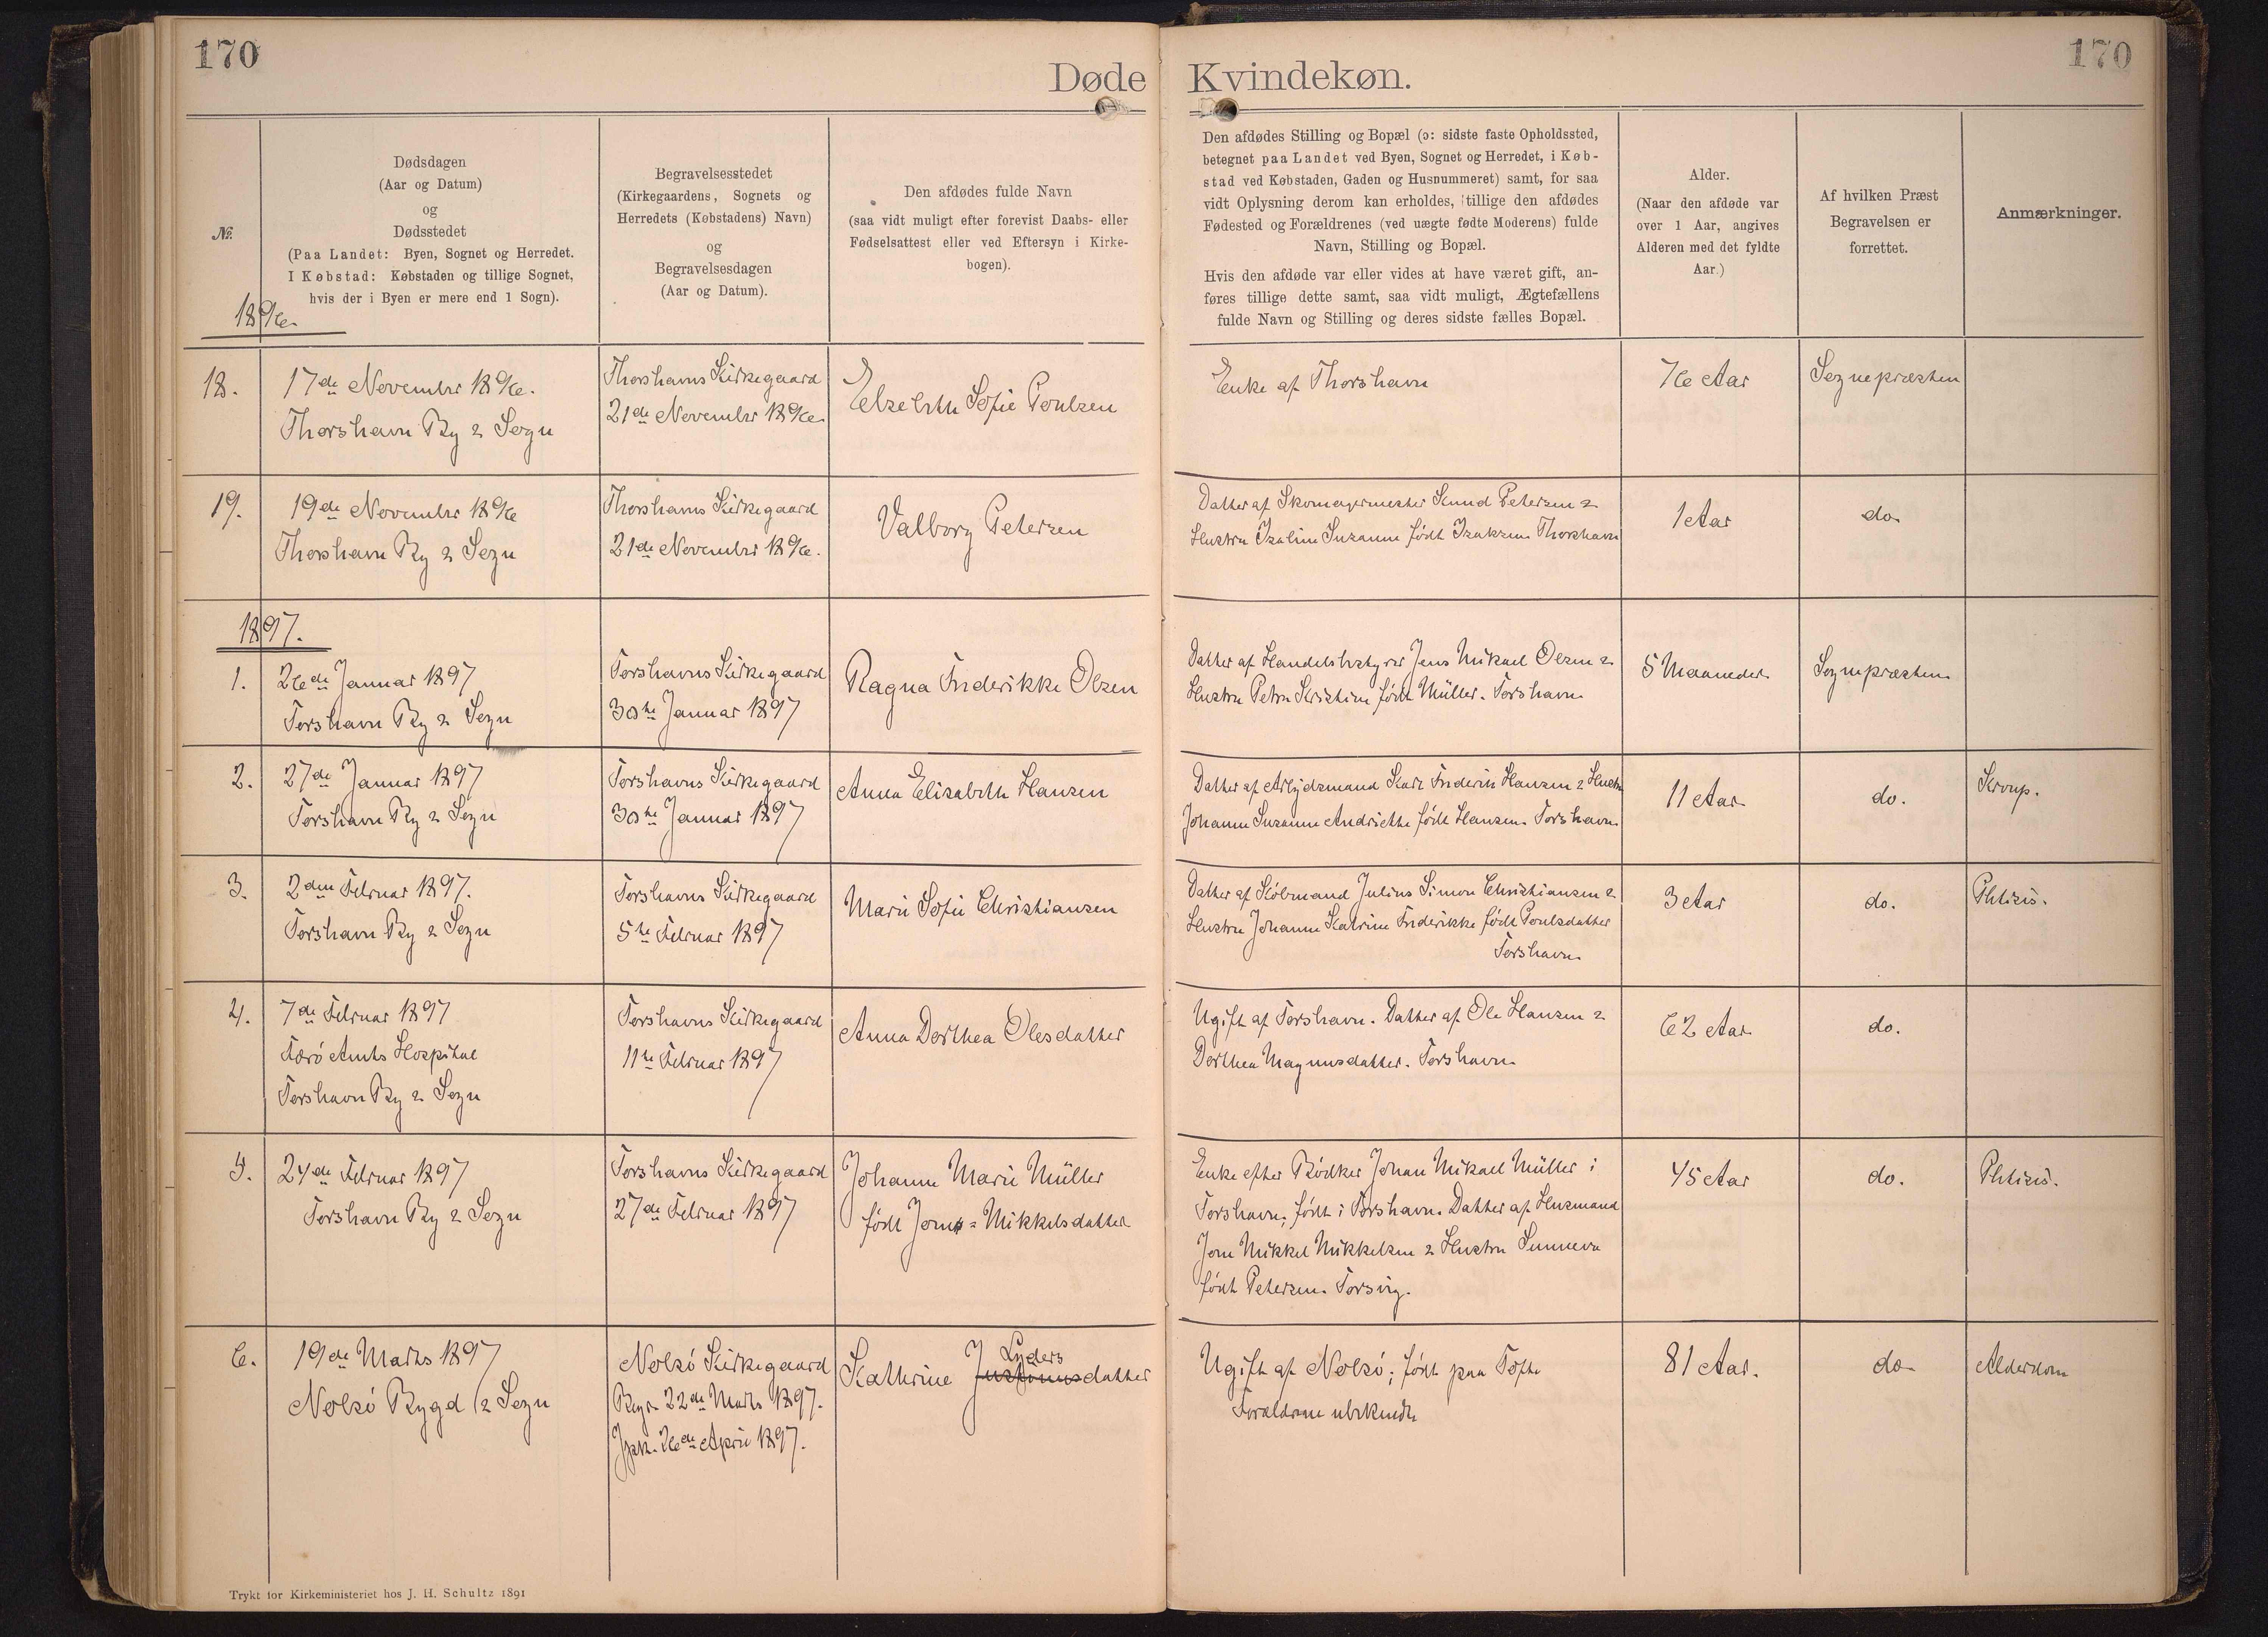 170
Døde
Kvindekøn.
170
№
Dødsdagen
(Aar og Datum)
og
Dødsstedet
(Paa Landet: Byen, Sognet og Herredet.
I Købstad: Købstaden og tillige Sognet,
hvis der i Byen er mere end 1 Sogn).
Begravelsesstedet
(Kirkegaardens, Sognets og
Herredets (Købstadens) Navn)
og
Begravelsesdagen
(Aar og Datum).
Den afdødes fulde Navn
(saa vidt muligt efter forevist Daabs- eller
Fødselsattest eller ved Eftersyn i Kirke-
bogen).
Den afdødes Stilling og Bopæl (ɔ: sidste faste Opholdssted,
betegnet paa Landet ved Byen, Sognet og Herredet, i Køb-
stad ved Købstaden, Gaden og Husnummeret) samt, for saa
vidt Oplysning derom kan erholdes, tillige den afdødes
Fødested og Forældrenes (ved uægte fødte Moderens) fulde
Navn, Stilling og Bopæl.
Hvis den afdøde var eller vides at have været gift, an-
føres tillige dette samt, saa vidt muligt, Ægtefællens
fulde Navn og Stilling og deres sidste fælles Bopæl.
Alder.
(Naar den afdøde var
over 1 Aar, angives
Alderen med det fyldte
Aar.)
Af hvilken Præst
Begravelsen er
forrettet.
Anmærkninger.
1896.
18.
17de November 1896.
Thorshavn By & Sogn
Thorshavns Kirkegaard
21de November 1896.
Elsebeth Sofie Poulsen
Enke af Thorshavn
76 Aar
Sognepræsten
19.
19de November 1896
Thorshavn By & Sogn
Thorshavns Kirkegaard
21de November 1896.
Valborg Petersen
Datter af Skomagermester Knud Petersen &
Hustru Isaline Susanne født Isaksen Thorshavn
1 Aar
do.
1897.
1.
26de Januar 1897
Torshavn By & Sogn
Torshavns Kirkegaard
30te Januar 1897
Ragna Frederikke Olsen
Datter af Handelsbestyrer Jens Mikael Olsen &
Hustru Petra Kristine født Müller. Torshavn.
5 Maaneder.
Sognepræsten.
2.
27de Januar 1897
Torshavn By & Sogn
Torshavns Kirkegaard
30te Januar 1897
Anna Elisabeth Hansen
Datter af Arbejdsmand Karl Frederik Hansen & Hustru
Johanne Susanne Andriette født Hansen. Torshavn.
11 Aar
do.
Krop.
3.
2den Februar 1897.
Torshavn By & Sogn
Torshavns Kirkegaard
5te Februar 1897
Marie Sofie Christiansen
Datter af Købmand Julius Simon Christiansen &
Hustru Johanne Katrine Frederikke født Poulsdatter
Torshavn.
3 Aar
do.
Phtisis.
4.
7de Februar 1897
Færø Amts Hospital
Torshavn By & Sogn
Torshavns Kirkegaard
11te Februar 1897
Anna Dorthea Olesdatter
Ugift af Torshavn. Datter af Ole Hansen &
Dorthea Magnusdatter. Torshavn.
62 Aar
do.
5.
24de Februar 1897
Torshavn By & Sogn
Torshavns Kirkegaard
27de Februar 1897
Johanne Marie Müller
født Joen = Mikkelsdatter
Enke efter Bødker Johan Mikael Müller i
Torshavn; født i Torshavn. Datter af Husmand
Joen Mikkel Mikkelsen & Hustru Sunneva
født Petersen. Torsvig.
45 Aar
do.
Phtisis.
6.
19de Marts 1897
Nolsø Bygd & Sogn
Nolsø Kirkegaard
Begr. 22de Marts 1897.
Jpk. 26de April 1897.
Lyders
Kathrine Justinusdatter
Ugift af Nolsø; født paa Tofte
Forældrene ubekendte
81 Aar.
do
Alderdom
Trykt for Kirkeministeriet hos J. H. Schultz 1891